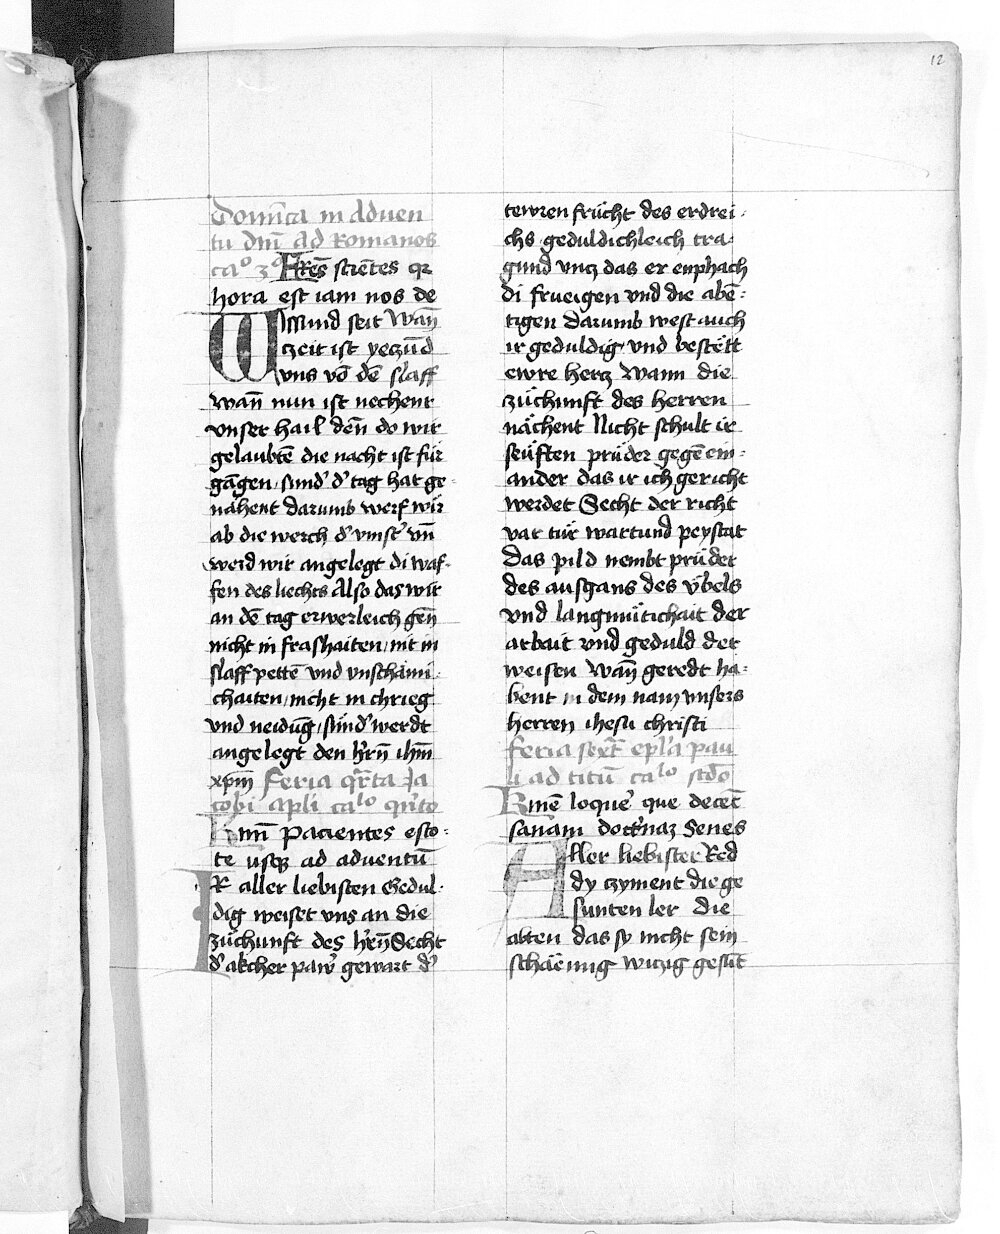 12
Domica in Aduen
tu dni Ad Romanos
ca° 3° FRes scientes qz
hora est iam nos de
Wissund seit Wañ
czeit ist yeczūd
vns vō dē slaff
wañ nun ist nechent
vnser hail deñ do wir
gelaubtē die nacht ist für
gāgen sund' d' tag hat ge
nähent darumb werf wir
ab die werch d' vinst' vñ
werd wir angelegt di waf
fen des liechts Also das wir
an dē tag erwerleich geñ
nicht in frashaiten nit in
slaff pettē vnd vnschämi
chaiten nicht in chrieg
vnd neidūg sünd' werdt
angelegt den h'rñ ihm̄
xpm̄ Feria qrta Ja
cobi apli ca^lo qnto
Kmi Pacientes esto
te usqz ad aduentū
IR aller liebisten Gedul
dig weiset vns an die
zuchunft des h'reñ Secht
d' akcher paw' gewart d'
tewren frücht des erdrei
chs geduldichleich tra
gund vncz das er enphach
di frueigen vnd die abē
tigen darumb west auch
ir geduldig vnd bestett
ewre hercz Wann die
zuchunft des herren
nächent Nicht schult ir
seuften prüder gegē ein
ander das ir ich gericht
werdet Secht der richt
var tür wartund peystat
Das pild nembt prüder
des ausgans des vbels
vnd langmütichait der
arbait vnd geduld der
weisen Wañ geredt ha
bent in dem nam vnsers
herren ihesu christi
feria sext epl'a pau
li ad titū ca^lo scdo
Kmē loquer' que decēt
sanam doctrinaz Senes
Aller liebister Red
dy czyment die ge
sunten ler die
alten das sy nicht sein
witzig gesūt